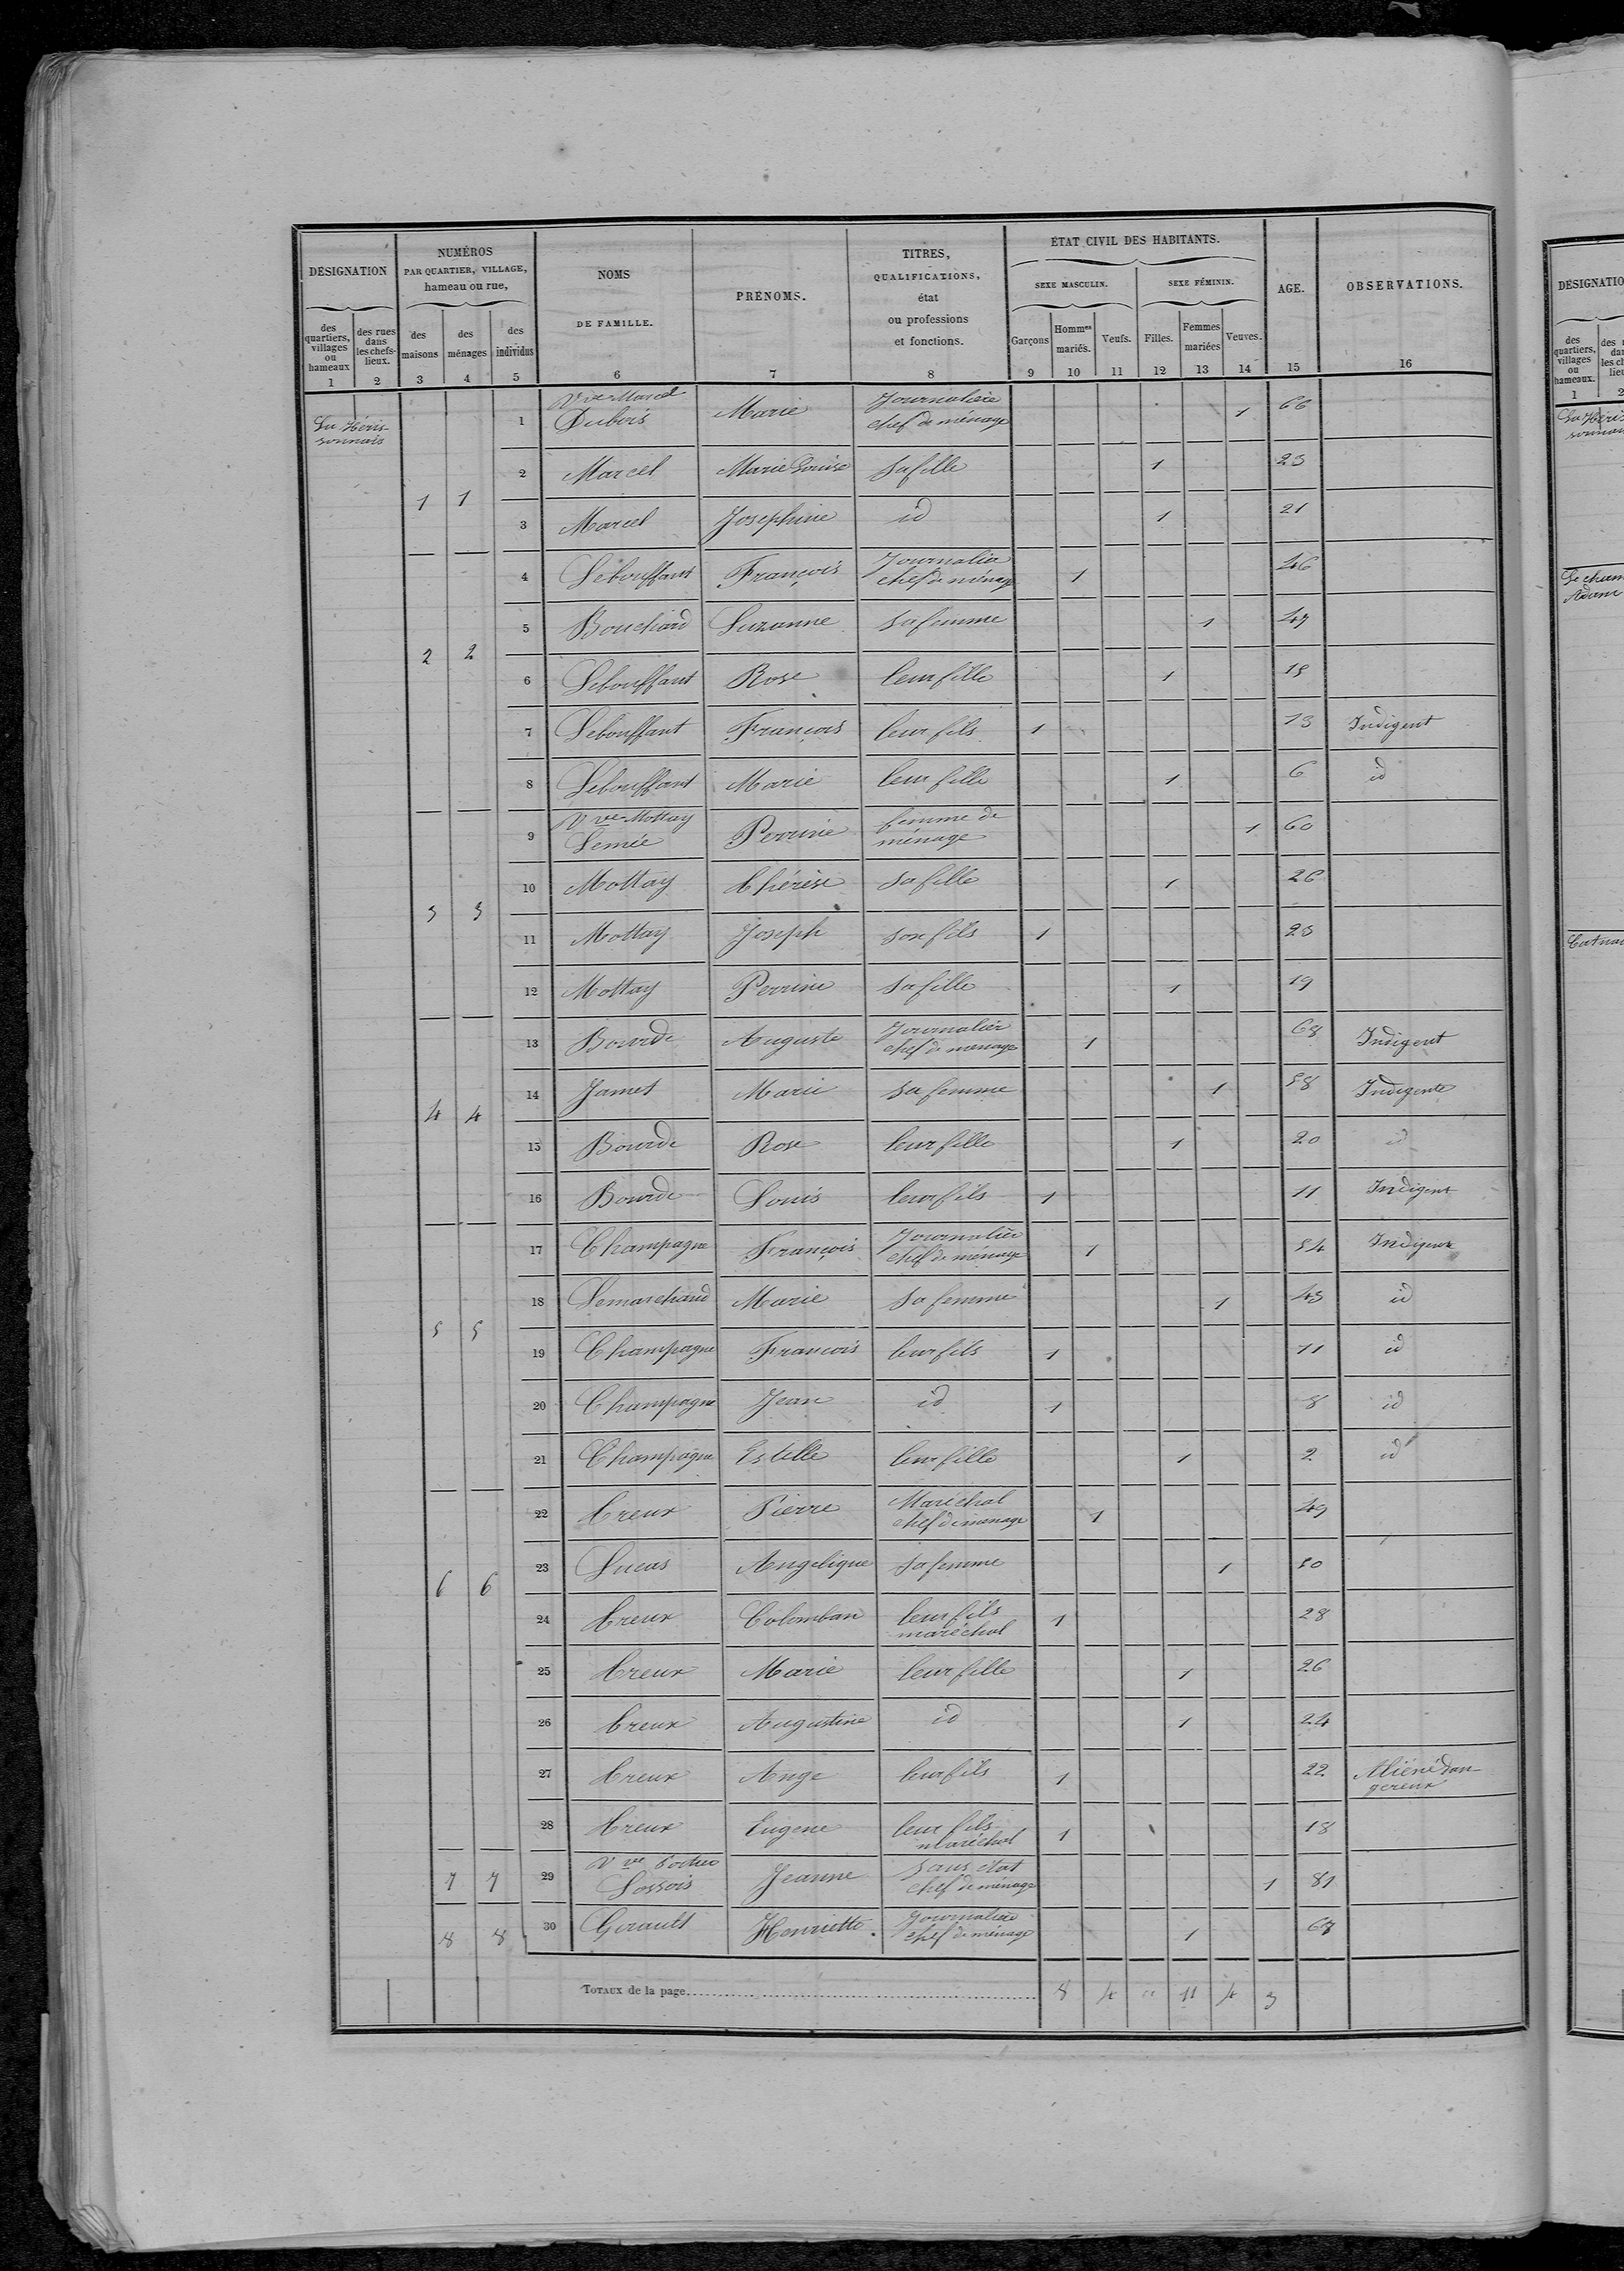 DÉSIGNATION
NUMÉROS
PAR QUARTIER, VILLAGE,
hameau ou rue,
NOMS
DE FAMILLE.
PRÉNOMS.
TITRES,
QUALIFICATIONS,
état
ou professions
et fonctions.
ÉTAT CIVIL DES HABITANTS.
SEXE MASCULIN. SEXE FÉMININ.
AGE.
OBSERVATIONS.
des quartiers, villages ou hameaux
des rues dans les chefs-lieux.
des maisons
des ménages
des individus
Garçons
Hommes mariés.
Veufs.
Filles.
Femmes mariées
Veuves.
1 2 3 4 5 6 7 8 9 10 11 12 13 14 15 16
La Héris-
sonnais
1 Vve Marcel Dubois Marie Journalière chef de ménage 1 66
2 Marcel Marie Louise sa fille 1 23
1 1
3 Marcel Josephine id 1 21
4 Lebouffant François Journalier chef de ménage 1 46
5 Bouchard Suzanne sa femme 1 49
2 2
6 Lebouffant Rose leur fille 1 15
7 Lebouffant François leur fils 1 13 Indigent
8 Lebouffant Marie leur fille 1 6 id
9 Vve Mottay Lemée Perrine femme de ménage 1 60
10 Mottay Thérèse sa fille 1 26
3 3
11 Mottay Joseph son fils 1 23
12 Mottay Perrine sa fille 1 19
13 Bourde Auguste Journalier chef de ménage 1 68 Indigent
14 Jamet Marie sa femme 1 58 Indigente
4 4
15 Bourde Rose leur fille 1 20 id
16 Bourde Louis leur fils 1 11 Indigent
17 Champagne François Journalier chef de ménage 1 54 Indigent
18 Lemarchand Marie sa femme 1 43 id
5 5
19 Champagne François leur fils 1 11 id
20 Champagne Jean id 1 8 id
21 Champagne Estelle leur fille 1 2 id
22 Creux Pierre Maréchal chef de menage 1 49
23 Lucas Angelique sa femme 1 50
6 6
24 Creux Colomban leur fils maréchal 1 28
25 Creux Marie leur fille 1 26
26 Creux Augustine id 1 24
27 Creux Ange leur fils 1 22 Aliéné dan-
gereux
28 Creux Eugene leur fils Maréchal 1 18
7 7 29 Vve Lossois Jeanne sans état chef de ménage 1 81
8 8 30 Gerault Henriette Journalière chef de ménage 1 68
TOTAUX de la page 8 4 " 11 4 3